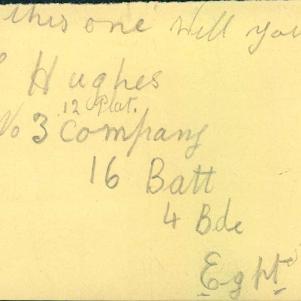 this one will you
Hughes
12 Plat.
No 3 Company
16 Batt
4 Bde
Eght